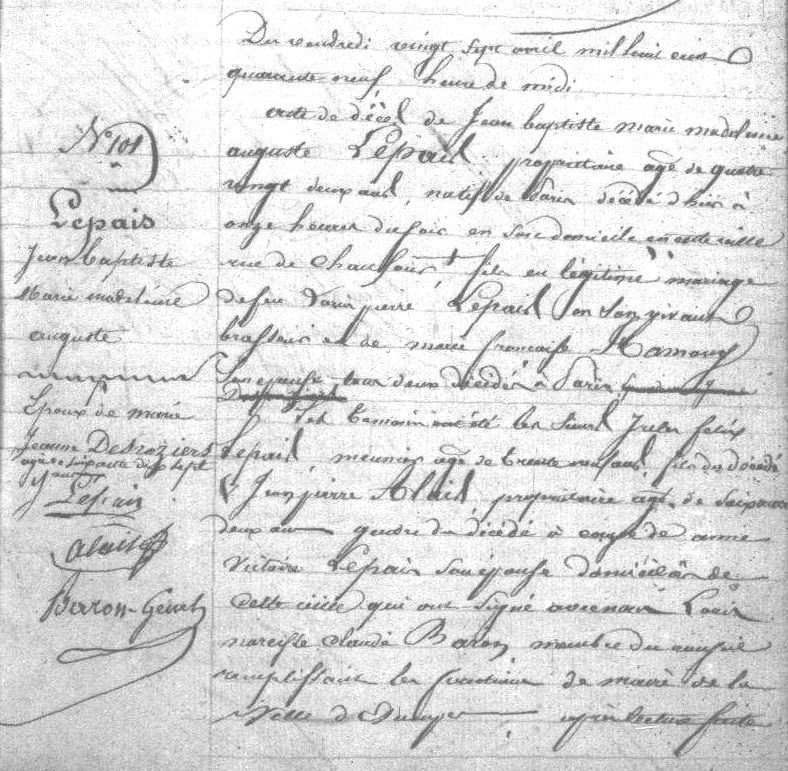 N° 101
Lepais
Jean baptiste
Marie madeleine
auguste
Epoux de marie
Jeanne Desroziers
agée de soixante dix sept
ans
Lepais
Alais
Baron-Genet
Du vendredi vingt sept avril mil huit cent
quarante neuf, heure de midi.
acte de décès de Jean baptiste marie madeleine
auguste Lepais, propriétaire agé de quatre
vingt deux ans, natif de Paris décédé d'hier à
onze heures du soir en son domicile en cette ville
rue de fils en légitime mariage
de feu pierre Lepais en son vivant
brasseur et de marie françoise Hamouy
son epouse tous deux décédés à Paris
Les temoins ont été les Sieurs Jules felix
Lepais, meunier agé de trente neuf ans, fils du décédé
& Jean pierre Alais, propriétaire agé de soixante
deux ans gendre du décédé à cause de anne
Victoire Lepais son épouse domiciliés de
cette ville qui ont signé avec nous Louis
narcisse claude Baron membre du conseil
remplissant les fonctions de maire de la
Ville d' après lecture faite